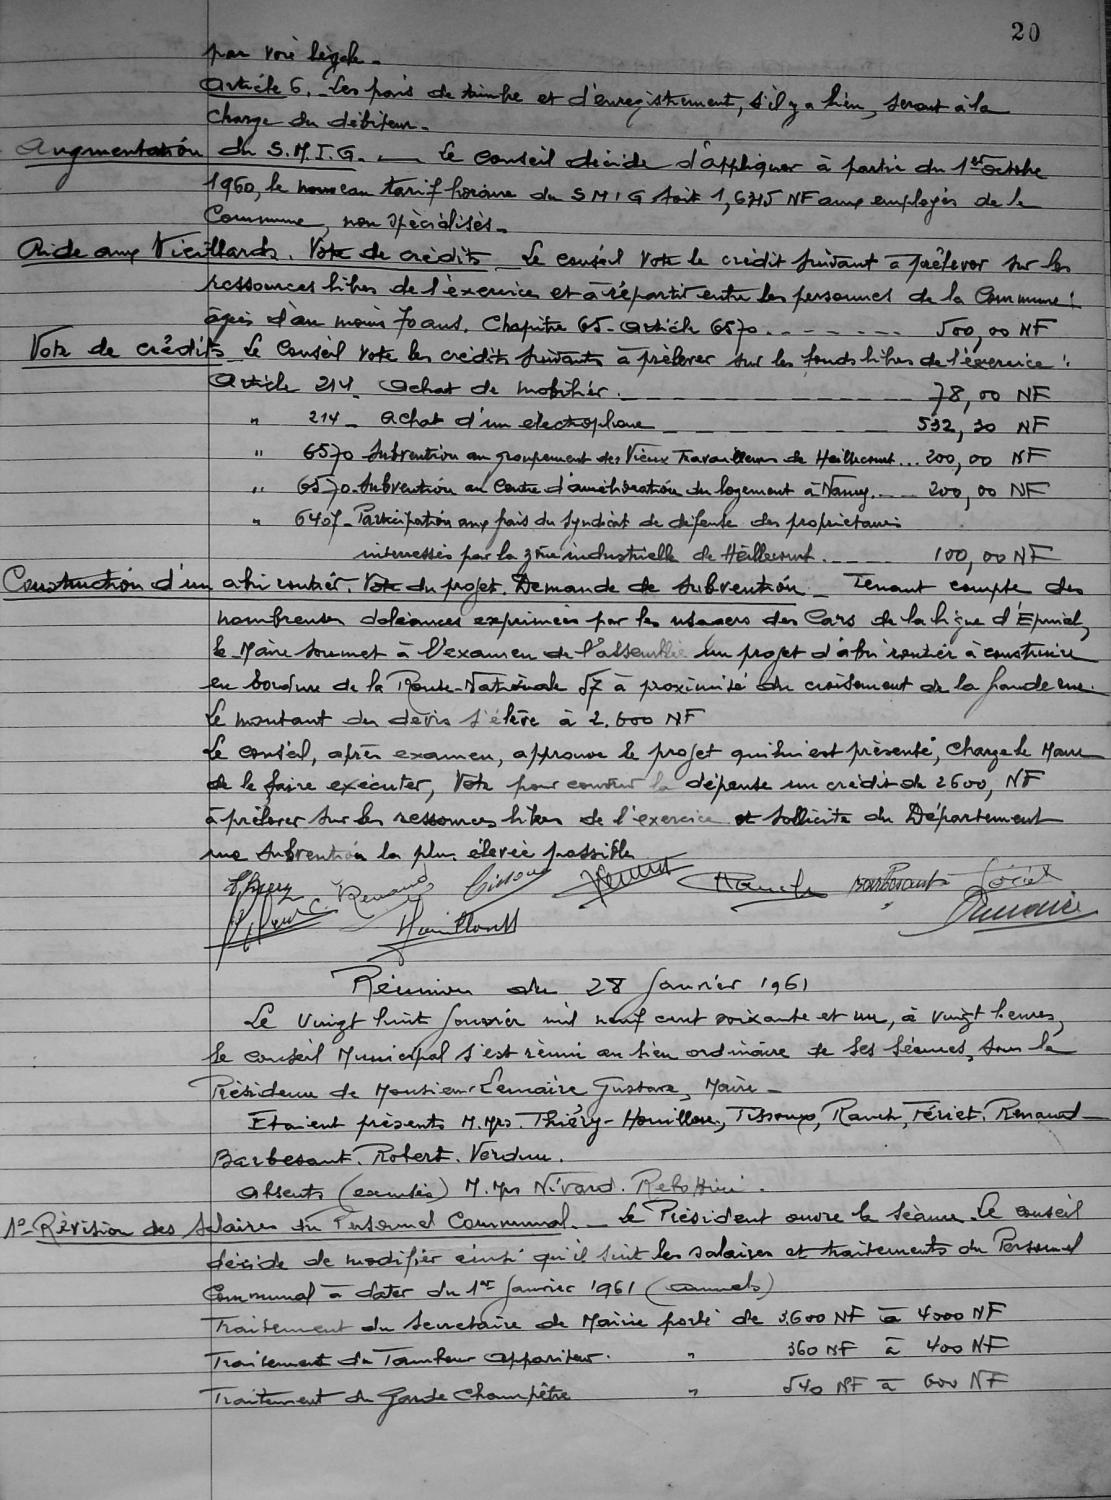 20
par voie légale.
Article 6. - Les frais de timbre et d'enregistrement, s'il y a lieu, seront à la
charge du débiteur.
Augmentation du S.M.I.G. - Le conseil décide d'appliquer à partir du 1er Octobre
1960, le nouveau tarif horaire du SMIG soit 1,6315 NF aux employés de la
Commune, non spécialisés.
Aide aux Vieillards. Vote de crédits - Le conseil vote le crédit suivant à prélever sur les
ressources libres de l'exercice et à répartir entre les personnes de la Commune
âgées d'au moins 70 ans. Chapitre 65 - Article 6570 - - - - - - - 500,00 NF
Vote de crédits - Le Conseil vote les crédits suivants à prélever sur les fonds libres de l'exercice :
Article 214 - Achat de mobilier - - - - - - - - - 78,00 NF
" 214 - Achat d'un electrophone - - - - - - - - 532,30 NF
" 6570 Subvention au groupement des Vieux Travailleurs de Heillecourt... 200,00 NF
" 6570 - Subvention au Centre d'amélioration du logement à Nancy - - - 200,00 NF
" 6407 - Participation aux frais du Syndicat de défense des propriétaires
intéressés par la zone industrielle de Heillecourt - - - - 100,00 NF
Construction d'un abri routier. Vote du projet. Demande de subvention. - Tenant compte des
nombreuses doléances exprimées par les usagers des Cars de la ligne d'Epinal,
le Maire soumet à l'examen de l'assemblée un projet d'abri routier à construire
en bordure de la Route Nationale 57 à proximité du croisement de la grande rue.
Le montant du devis s'élève à 2.600 NF
Le conseil, après examen, approuve le projet qui lui est présenté, charge le Maire
de le faire exécuter, Vote pour couvrir la dépense un crédit de 2600, NF
à prélever sur les ressources libres de l'exercice et sollicite du Département
une subvention la plus élevée possible
Thiery Renaud Tissoux Rauch Barbesant Fériet
Houillon Lemaire
Réunion du 28 Janvier 1961
Le vingt huit Janvier mil neuf cent soixante et un, à vingt heures,
le conseil Municipal s'est réuni au lieu ordinaire de ses séances, sous la
Présidence de Monsieur Lemaire Gustave, Maire -
Etaient présents M.Mrs. Thiéry - Houillon, Tissoux, Rauch, Fériet, Renaud -
Barbesant. Robert. Verdun.
Absents (excusés) M.Mrs Nivard.
1° - Révision des Salaires du Personnel Communal. - Le Président ouvre la séance. Le conseil
décide de modifier ainsi qu'il suit les salaires et traitements du Personnel
Communal à dater du 1er Janvier 1961 (annuels)
Traitement du Secrétaire de Mairie porté de 3.600 NF à 4000 NF
Traitement du Tambour appariteur. " 360 NF à 400 NF
Traitement du Garde Champêtre " 540 NF à 600 NF